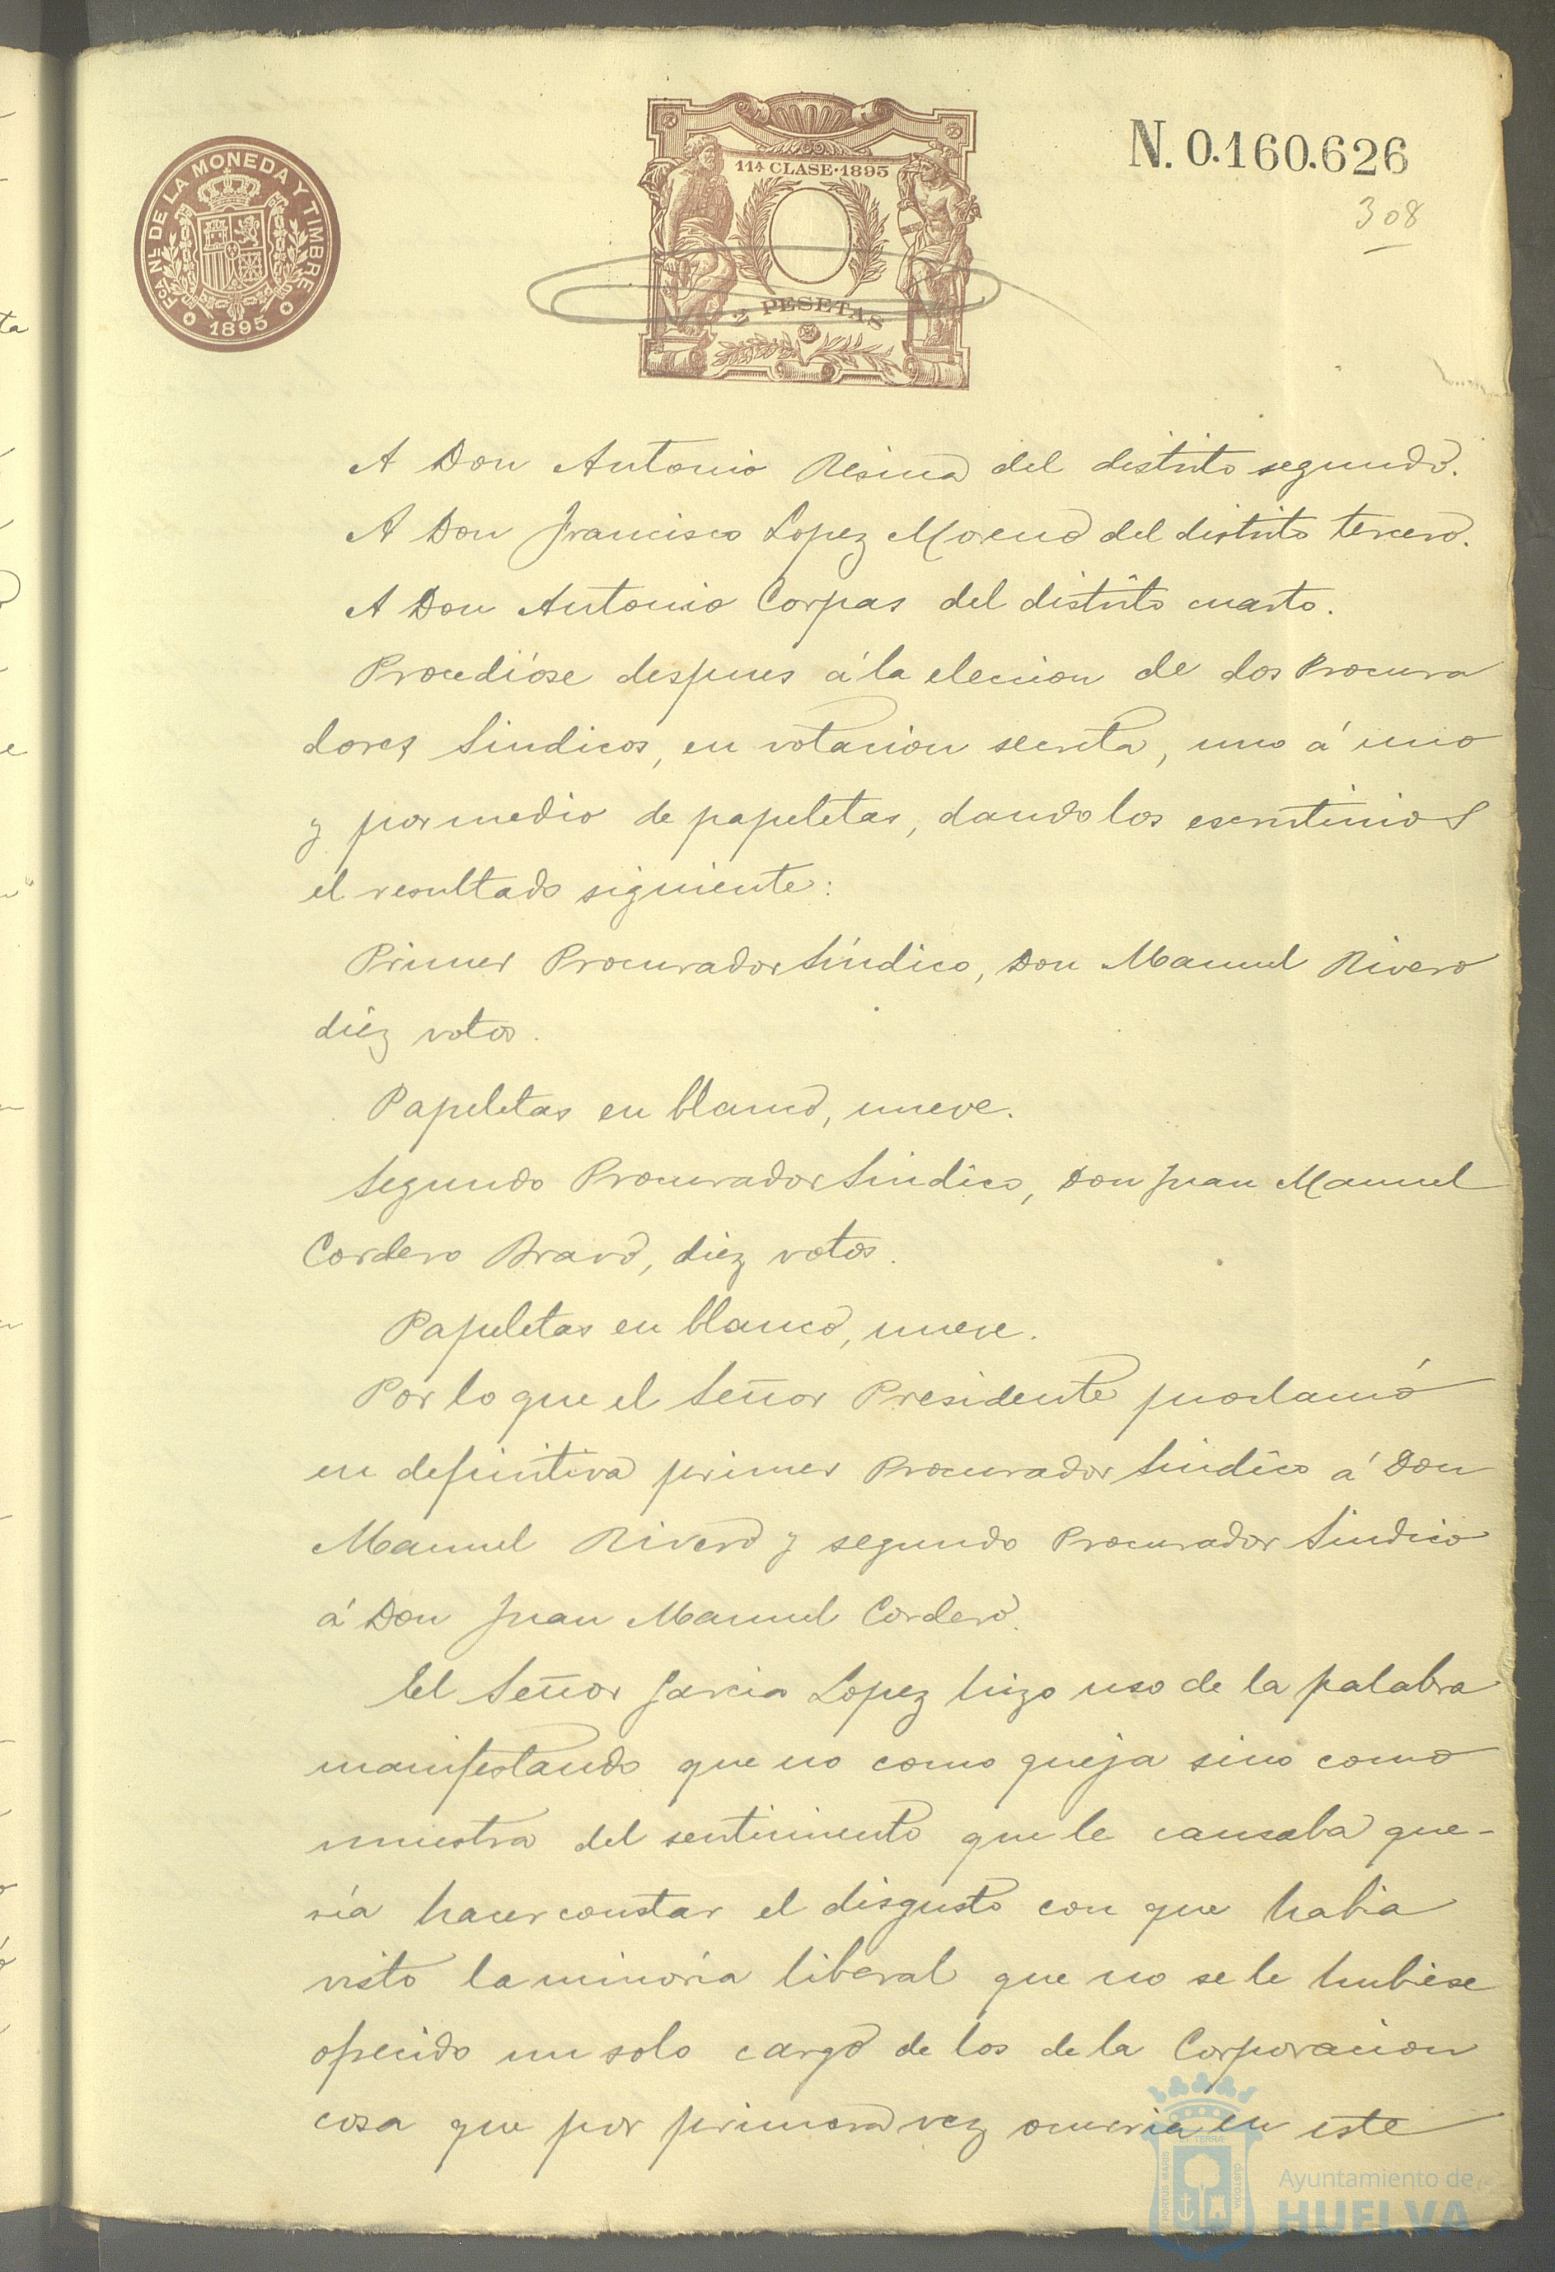 FCA NL DE LA MONEDA Y TIMBRE
1895
11ª CLASE·1895
2 PESETAS
N. 0.160.626
308
A Don Antonio Resina del distrito segundo.
A Don Francisco Lopez Moreno del distrito tercero.
A Don Antonio Corpas del distrito cuarto.
Procedióse despues á la eleccion de dos Procura
dores Sindicos, en votacion secreta, uno á uno
y por medio de papeletas, dando los escrutinios
el resultado siguiente:
Primer Procurador Síndico, Don Manuel Rivero
diez votos.
Papeletas en blanco, nueve.
Segundo Procurador Sindico, Don Juan Manuel
Cordero Bravo, diez votos.
Papeletas en blanco, nueve.
Por lo que el Señor Presidente proclamó
en definitiva primer Procurador Sindico á Don
Manuel Rivero y segundo Procurador Sindico
á Don Juan Manuel Cordero.
El Señor Garcia Lopez hizo uso de la palabra
manifestando que no como queja sino como
muestra del sentimiento que le causaba que-
ría hacer constar el disgusto con que habia
visto la minoría liberal que no se le hubiese
ofrecido un solo cargo de los de la Corporacion
cosa que por primera vez ocurria en este
PORTUS MARIS
ET TERRAE
CUSTODIA
Ayuntamiento de
HUELVA